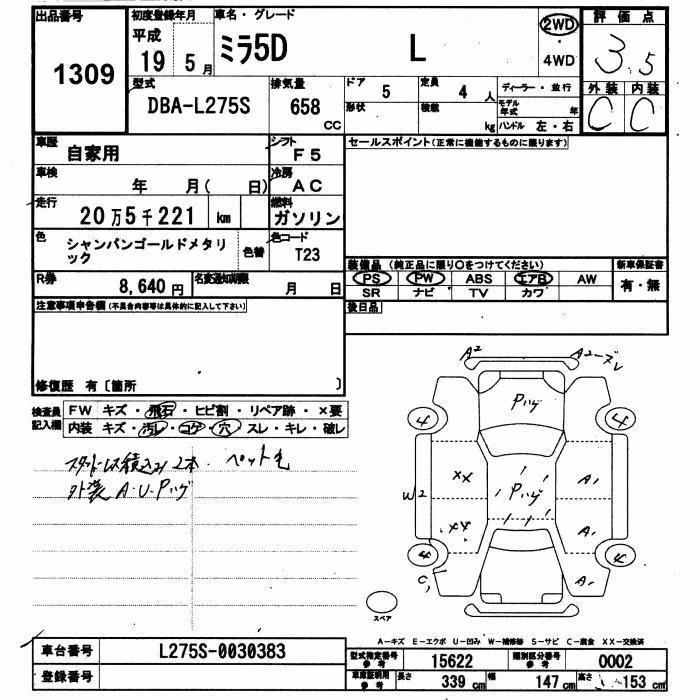 出品番号 初度登録年月 車名・グレード 2WD 評価点
1309 平成 19年 5月 ミラ5D L ・ 4WD 3.5
型式 排気量 ドア 5 定員 4人 ディーラー・並行 外装 内装
DBA-L275S 658 CC 形状 積載 kg モデル年式 年 C C
ハンドル 左・右
車歴 自家用 シフト F5 セールスポイント(正常に機能するものに限ります)
車検 年 月( 日) 冷房 AC
走行 20万5千221 km 燃料 ガソリン
色 シャンパンゴールドメタリック 色替 色コード T23
装備品 (純正品に限り○をつけてください) 新車保証書
R券 8,640円 名変通知期限 月 日 PS PW ABS エアB AW 有・無
SR ナビ TV カワ
注意事項申告欄(不具合内容等は具体的に記入して下さい) 後日品
修復歴 有〔箇所 〕
検査員記入欄 FW キズ・飛石・ヒビ割・リペア跡・×要
内装 キズ・汚レ・コゲ・穴・スレ・キレ・破レ
積込み2本 ペット毛
外装 A・U・Pハゲ
A2 A2 ズレ
Pハゲ
4 4
XX Pハゲ A1
W2
XX A1
4 4
C1 A1
スペア
A-キズ E-エクボ U-凹み W-補修跡 S-サビ C-腐食 XX-交換済
車台番号 L275S-0030383 型式指定番号 参考 15622 類別区分番号 参考 0002
登録番号 車庫証明用 参考 長さ 339cm 幅 147cm 高さ 153cm